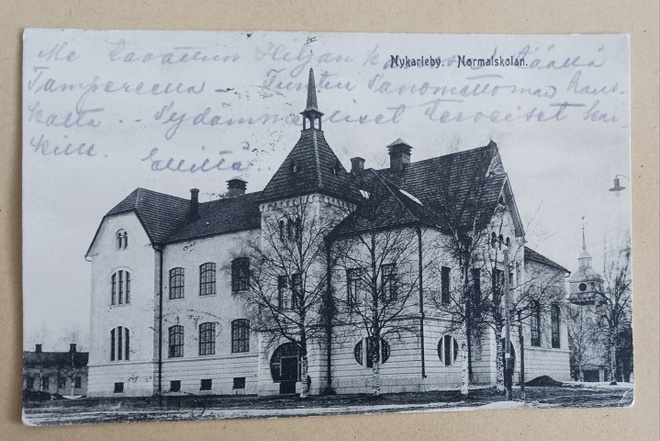 Nykarleby. Normalskolan.
Me tavattiin Hiljan kanssa täällä
Tampereella — Tuntui sanomattoman haus-
kalta.. Sydämmelliset terveiset kai
kille. Elliltä.